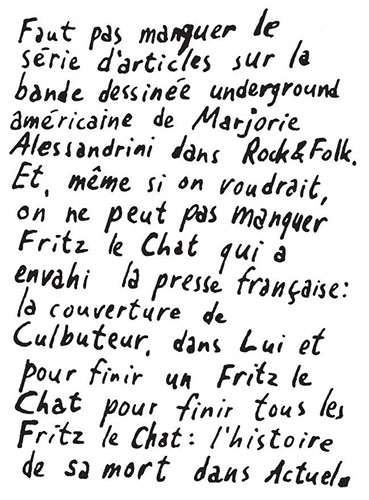 Faut pas manquer le
série d'articles sur la
bande dessinée underground
américaine de Marjorie
Alessandrini dans Rock&Folk.
Et, même si on voudrait,
on ne peut pas manquer
Fritz le Chat qui a
envahi la presse française:
la couverture de
Culbuteur, dans Lui et
pour finir un Fritz le
Chat pour finir tous les
Fritz le Chat: l'histoire
de sa mort dans Actuel.